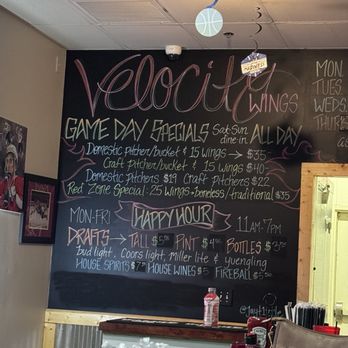 Velocity
WINGS
GAME DAY SPECIALS Sat & Sun dine-in ALL DAY
Domestic pitcher/bucket & 15 wings → $35
Craft pitcher/bucket & 15 wings $40
Domestic Pitchers $19 Craft Pitchers $22
Red Zone Special: 25 wings - boneless/traditional $35
MON-FRI HAPPY HOUR 11AM-7PM
DRAFTS → TALL PINT BOTTLES
bud light, Coors light, miller lite & yuengling
HOUSE SPIRITS HOUSE WINES $5 FIREBALL
MON
TUES
WEDS
THURS